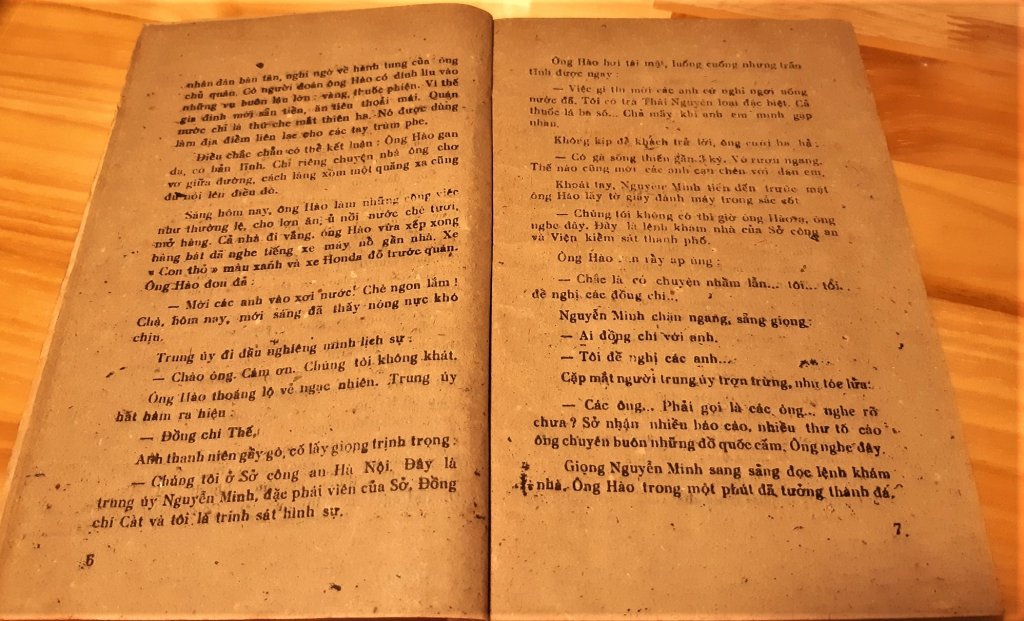 nhân dân bàn tán, nghi ngờ về hành tung của ông
chủ quán. Có người đoán ông Hào có dính líu vào
những vụ buôn lậu lớn : vàng, thuốc phiện. Vì thế
gia đình mới sẵn tiền, ăn tiêu thoải mái. Quán
nước chỉ là thứ che mắt thiên hạ. Nó được dùng
làm địa điểm liên lạc cho các tay trùm phe.
Điều chắc chắn có thể kết luận : Ông Hào gan
dạ, có bản lĩnh. Chỉ riêng chuyện nhà ông chơ
vơ giữa đường, cách làng xóm một quãng xa cũng
đủ nói lên điều đó.
Sáng hôm nay, ông Hào làm những công việc
như thường lệ, cho lợn ăn, ủ nồi nước chè tươi,
mở hàng. Cả nhà đi vắng. ông Hào vừa xếp xong
hàng bát đã nghe tiếng xe máy nổ gần nhà. Xe
« Con thỏ » màu xanh và xe Honda đỗ trước quán.
Ông Hào đon đả :
— Mời các anh vào xơi nước! Chè ngon lắm !
Chà, hôm nay, mới sáng đã thấy nóng nực khó
chịu.
Trung úy đi đầu nghiêng mình lịch sự :
— Chào ông. Cám ơn. Chúng tôi không khát.
Ông Hào thoáng lộ vẻ ngạc nhiên. Trung úy
hất hàm ra hiệu :
— Đồng chí Thế,
Anh thanh niên gầy gò, cố lấy giọng trịnh trọng :
— Chúng tôi ở Sở công an Hà Nội. Đây là
trung úy Nguyễn Minh, đặc phái viên của Sở. Đồng
chí Cát và tôi là trinh sát hình sự.
6
Ông Hào hơi tái mặt, luống cuống nhưng trấn
tĩnh được ngay :
— Việc gì thì mời các anh cứ nghỉ ngơi uống
nước đã. Tôi có trà Thái Nguyên loại đặc biệt. Cả
thuốc lá ba số... Chả mấy khi anh em mình gặp
nhau.
Không kịp để khách trả lời, ông cười ba hả :
— Có gà sống thiến gần 3 ký. Vò rượu ngang.
Thế nào cũng mời các anh cạn chén với đàn em.
Khoát tay, Nguyễn Minh tiến đến trước mặt
ông Hào lấy tờ giấy đánh máy trong sắc cốt
— Chúng tôi không có thì giờ ông Hào ạ, ông
nghe đây. Đây là lệnh khám nhà của Sở công an
và Viện kiểm sát thành phố.
Ông Hào run rẩy ấp úng :
— Chắc là có chuyện nhầm lẫn... tôi... tôi...
đề nghị các đồng chí...
Nguyễn Minh chặn ngang, sẵng giọng :
— Ai đồng chí với anh.
— Tôi đề nghị các anh...
Cặp mắt người trung úy trợn trừng, như tóe lửa:
— Các ông... Phải gọi là các ông... nghe rõ
chưa ? Sở nhận nhiều báo cáo, nhiều thư tố cáo
ông chuyên buôn những đồ quốc cấm. Ông nghe đây.
Giọng Nguyễn Minh sang sảng đọc lệnh khám
nhà. Ông Hào trong một phút đã tưởng thành đá.
7